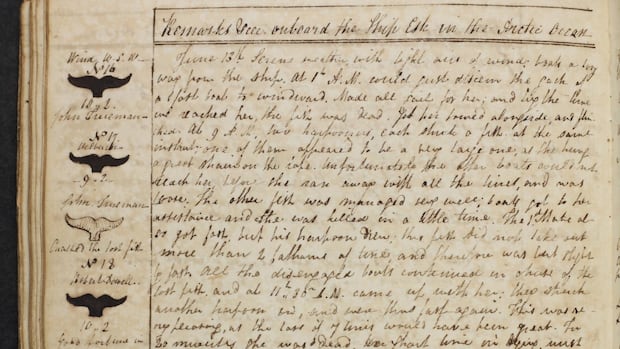 Remarks &c. onboard the Ship Esk in the Arctic Ocean
Wind, W.S.W.
No 16
10 - 2
John Freeman
No 17
9 - 2
John Freeman
Chased the lost fish
No 18
10 - 2
Good fortune in
June 13th Serene weather, with light airs of wind; boats a long
way from the ship. At 1 A.M. could just discern the jack of
a fast boat to windward. Made all sail for her; and by the time
we reached her, the fish was dead. Got her towed alongside, and flin
ched. At 9 A.M. two harpooners, each struck a fish at the same
instant; one of them appeared to be a very large one, as she hung
a great strain on the rope. Unfortunately the other boats could not
reach her before she ran away with all the lines, and was
loose. The other fish was managed very well; boats got to her
assistance and she was killed in a little time. The Mate al
so got fast, but his harpoon drew, the fish did not take out
more than 2 fathoms of line, and therefore was but slight
ly fast. All the disengaged boats continued in chase of the
lost fish, and at 11h. 35 A.M. came up with her; they struck
another harpoon in, and were thus fast again. This was ve
ry pleasing, as the loss of 7 lines would have been great. In
30 minutes she was dead. Her short time in dying, must